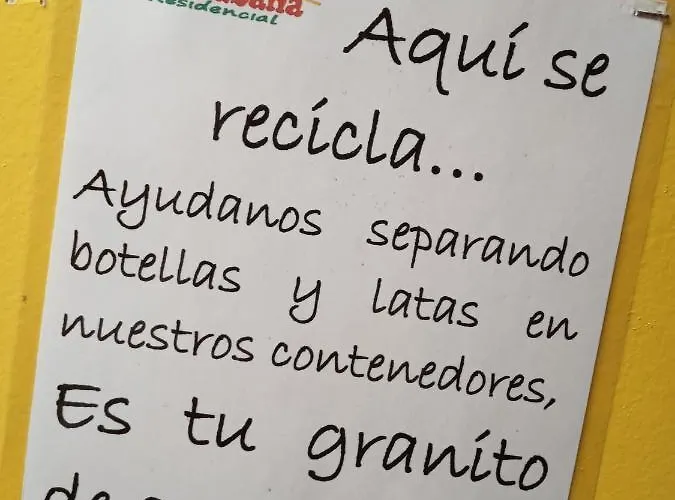 Residencial
Aquí se
recicla...
Ayudanos separando
botellas y latas en
nuestros contenedores,
Es tu granito
de